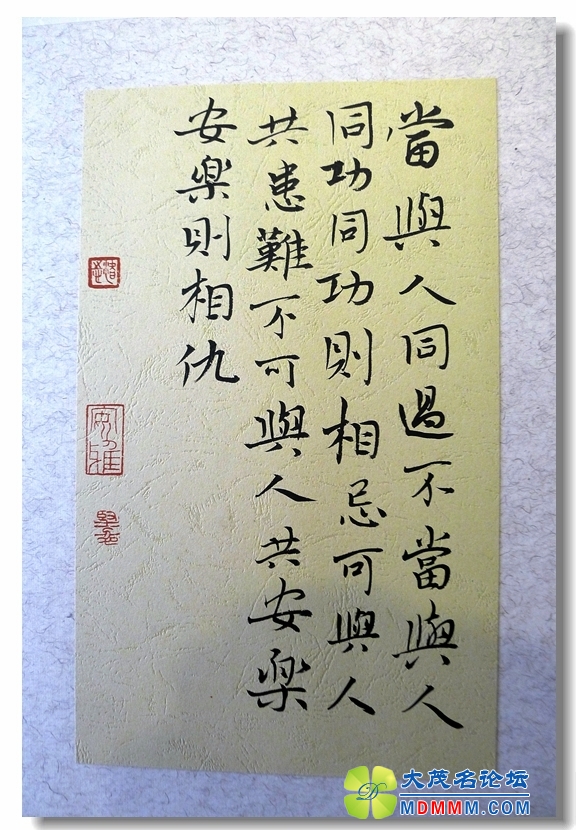 當與人同過不當與人
同功同功則相忌可與人
共患難不可與人共安樂
安樂則相仇
大茂名论坛
MDMMM.COM